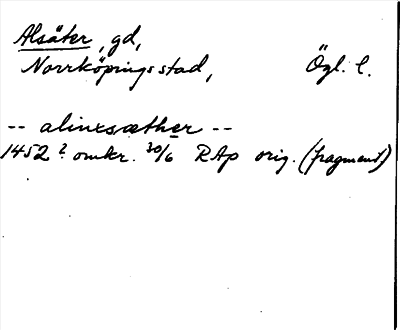 Alsäter, gd,
Norrköpings stad, Ögl. l.
-- alinxsæther --
1452? omkr. 30/6 RAp orig. (fragment)